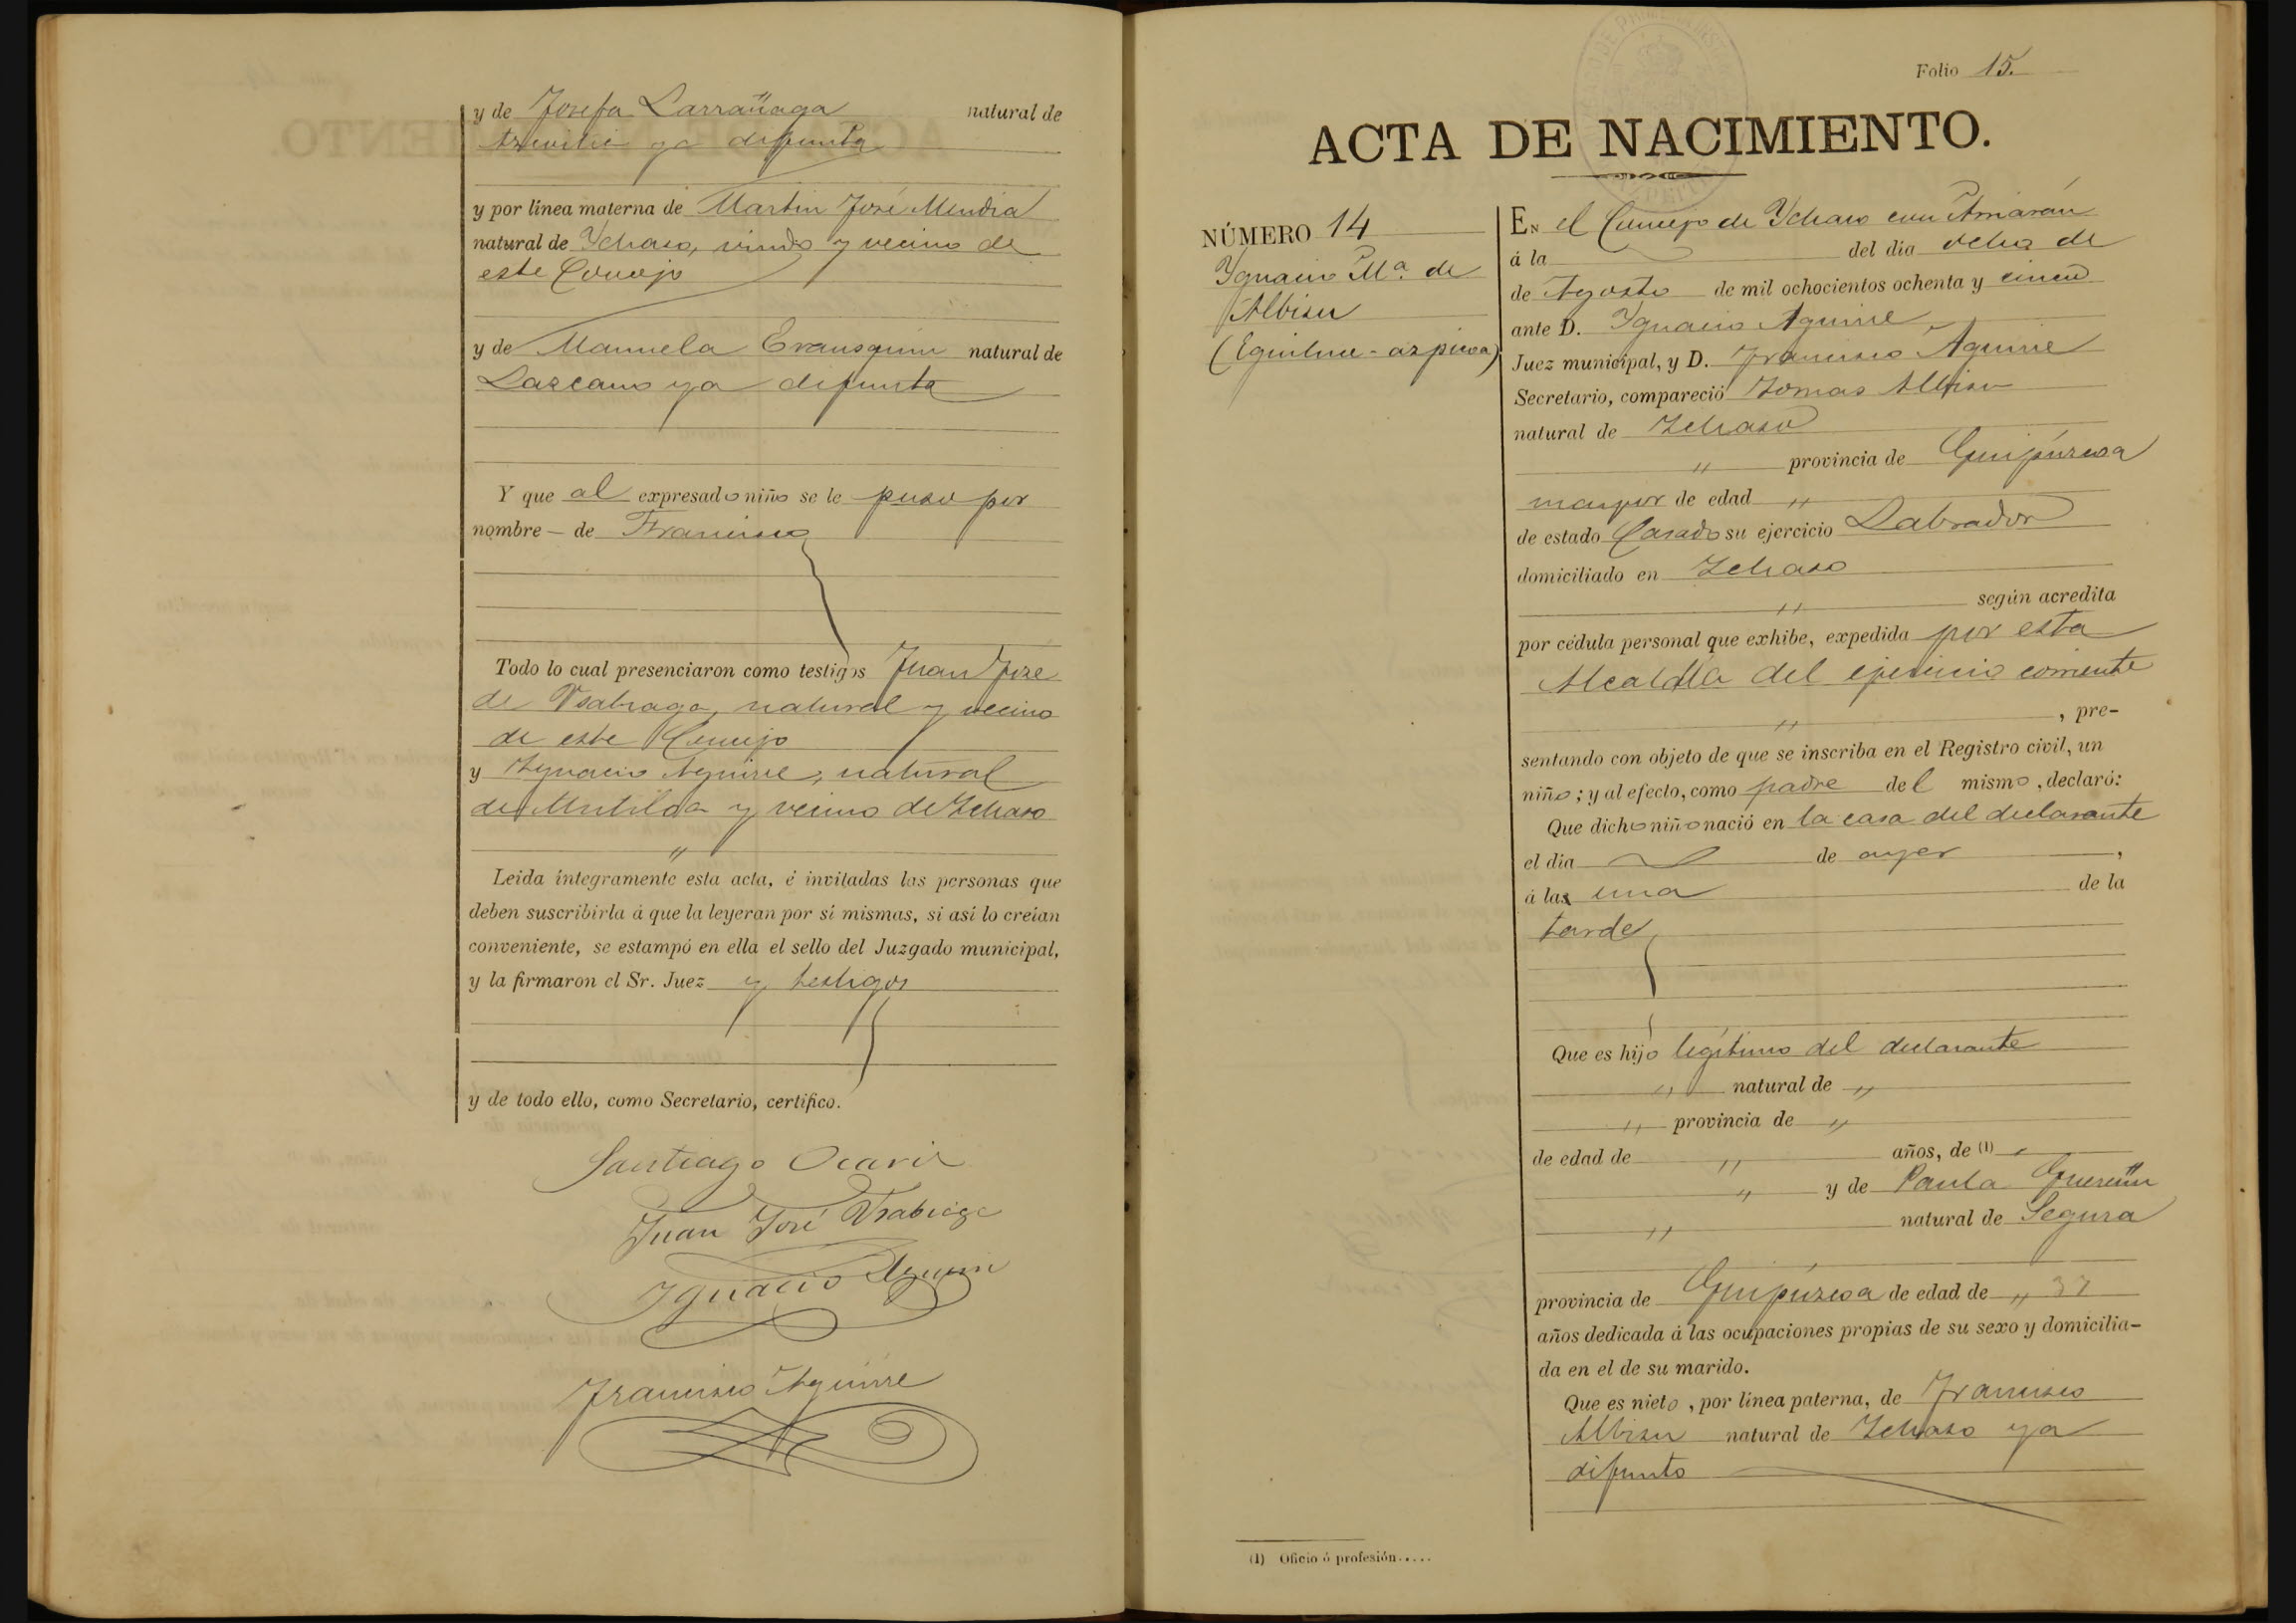 y de Josefa Larrañaga natural de
ya difunta
y por línea materna de Martin José Mendia
natural de Ychaso, viudo y vecino de
este Concejo
y de Manuela Erausquin natural de
Lazcano ya difunta
Y que al expresado niño se le puso por
nombre — de Francisco
Todo lo cual presenciaron como testigos Juan José
de Ysabiaga, natural y vecino
de este Concejo
y Ygnacio Aguirre, natural
de Mutiloa y vecino de Ychaso
"
Leida íntegramente esta acta, é invitadas las personas que
deben suscribirla á que la leyeran por sí mismas, si así lo creían
conveniente, se estampó en ella el sello del Juzgado municipal,
y la firmaron el Sr. Juez y testigos
y de todo ello, como Secretario, certifico.
Santiago
Juan José Ysabiaga
Ygnacio Aguirre
Francisco Aguirre
Folio 15.
ACTA DE NACIMIENTO.
NÚMERO 14
Ygnacio Mª. de
Albisu
En el Concejo de Ychaso con Arriarán
á la del día ocho de
de Agosto de mil ochocientos ochenta y cinco
ante D. Ygnacio Aguirre
Juez municipal, y D. Francisco Aguirre
Secretario, compareció Tomas Albisu
natural de Ychaso
" provincia de Guipúzcoa
mayor de edad "
de estado Casado su ejercicio Labrador
domiciliado en Ychaso
" según acredita
por cédula personal que exhibe, expedida por esta
Alcaldía del ejercicio corriente
" , pre-
sentando con objeto de que se inscriba en el Registro civil, un
niño; y al efecto, como padre del mismo, declaró:
Que dicho niño nació en la casa del declarante
el día de ayer ,
á las una de la
tarde
Que es hijo legítimo del declarante
" natural de "
" provincia de "
de edad de " años, de (1) "
" y de Paula Guereñu
" natural de Segura
provincia de Guipúzcoa de edad de " 37
años dedicada á las ocupaciones propias de su sexo y domicilia-
da en el de su marido.
Que es nieto, por línea paterna, de Francisco
Albisu natural de Ychaso ya
difunto
(1) Oficio ó profesión.....